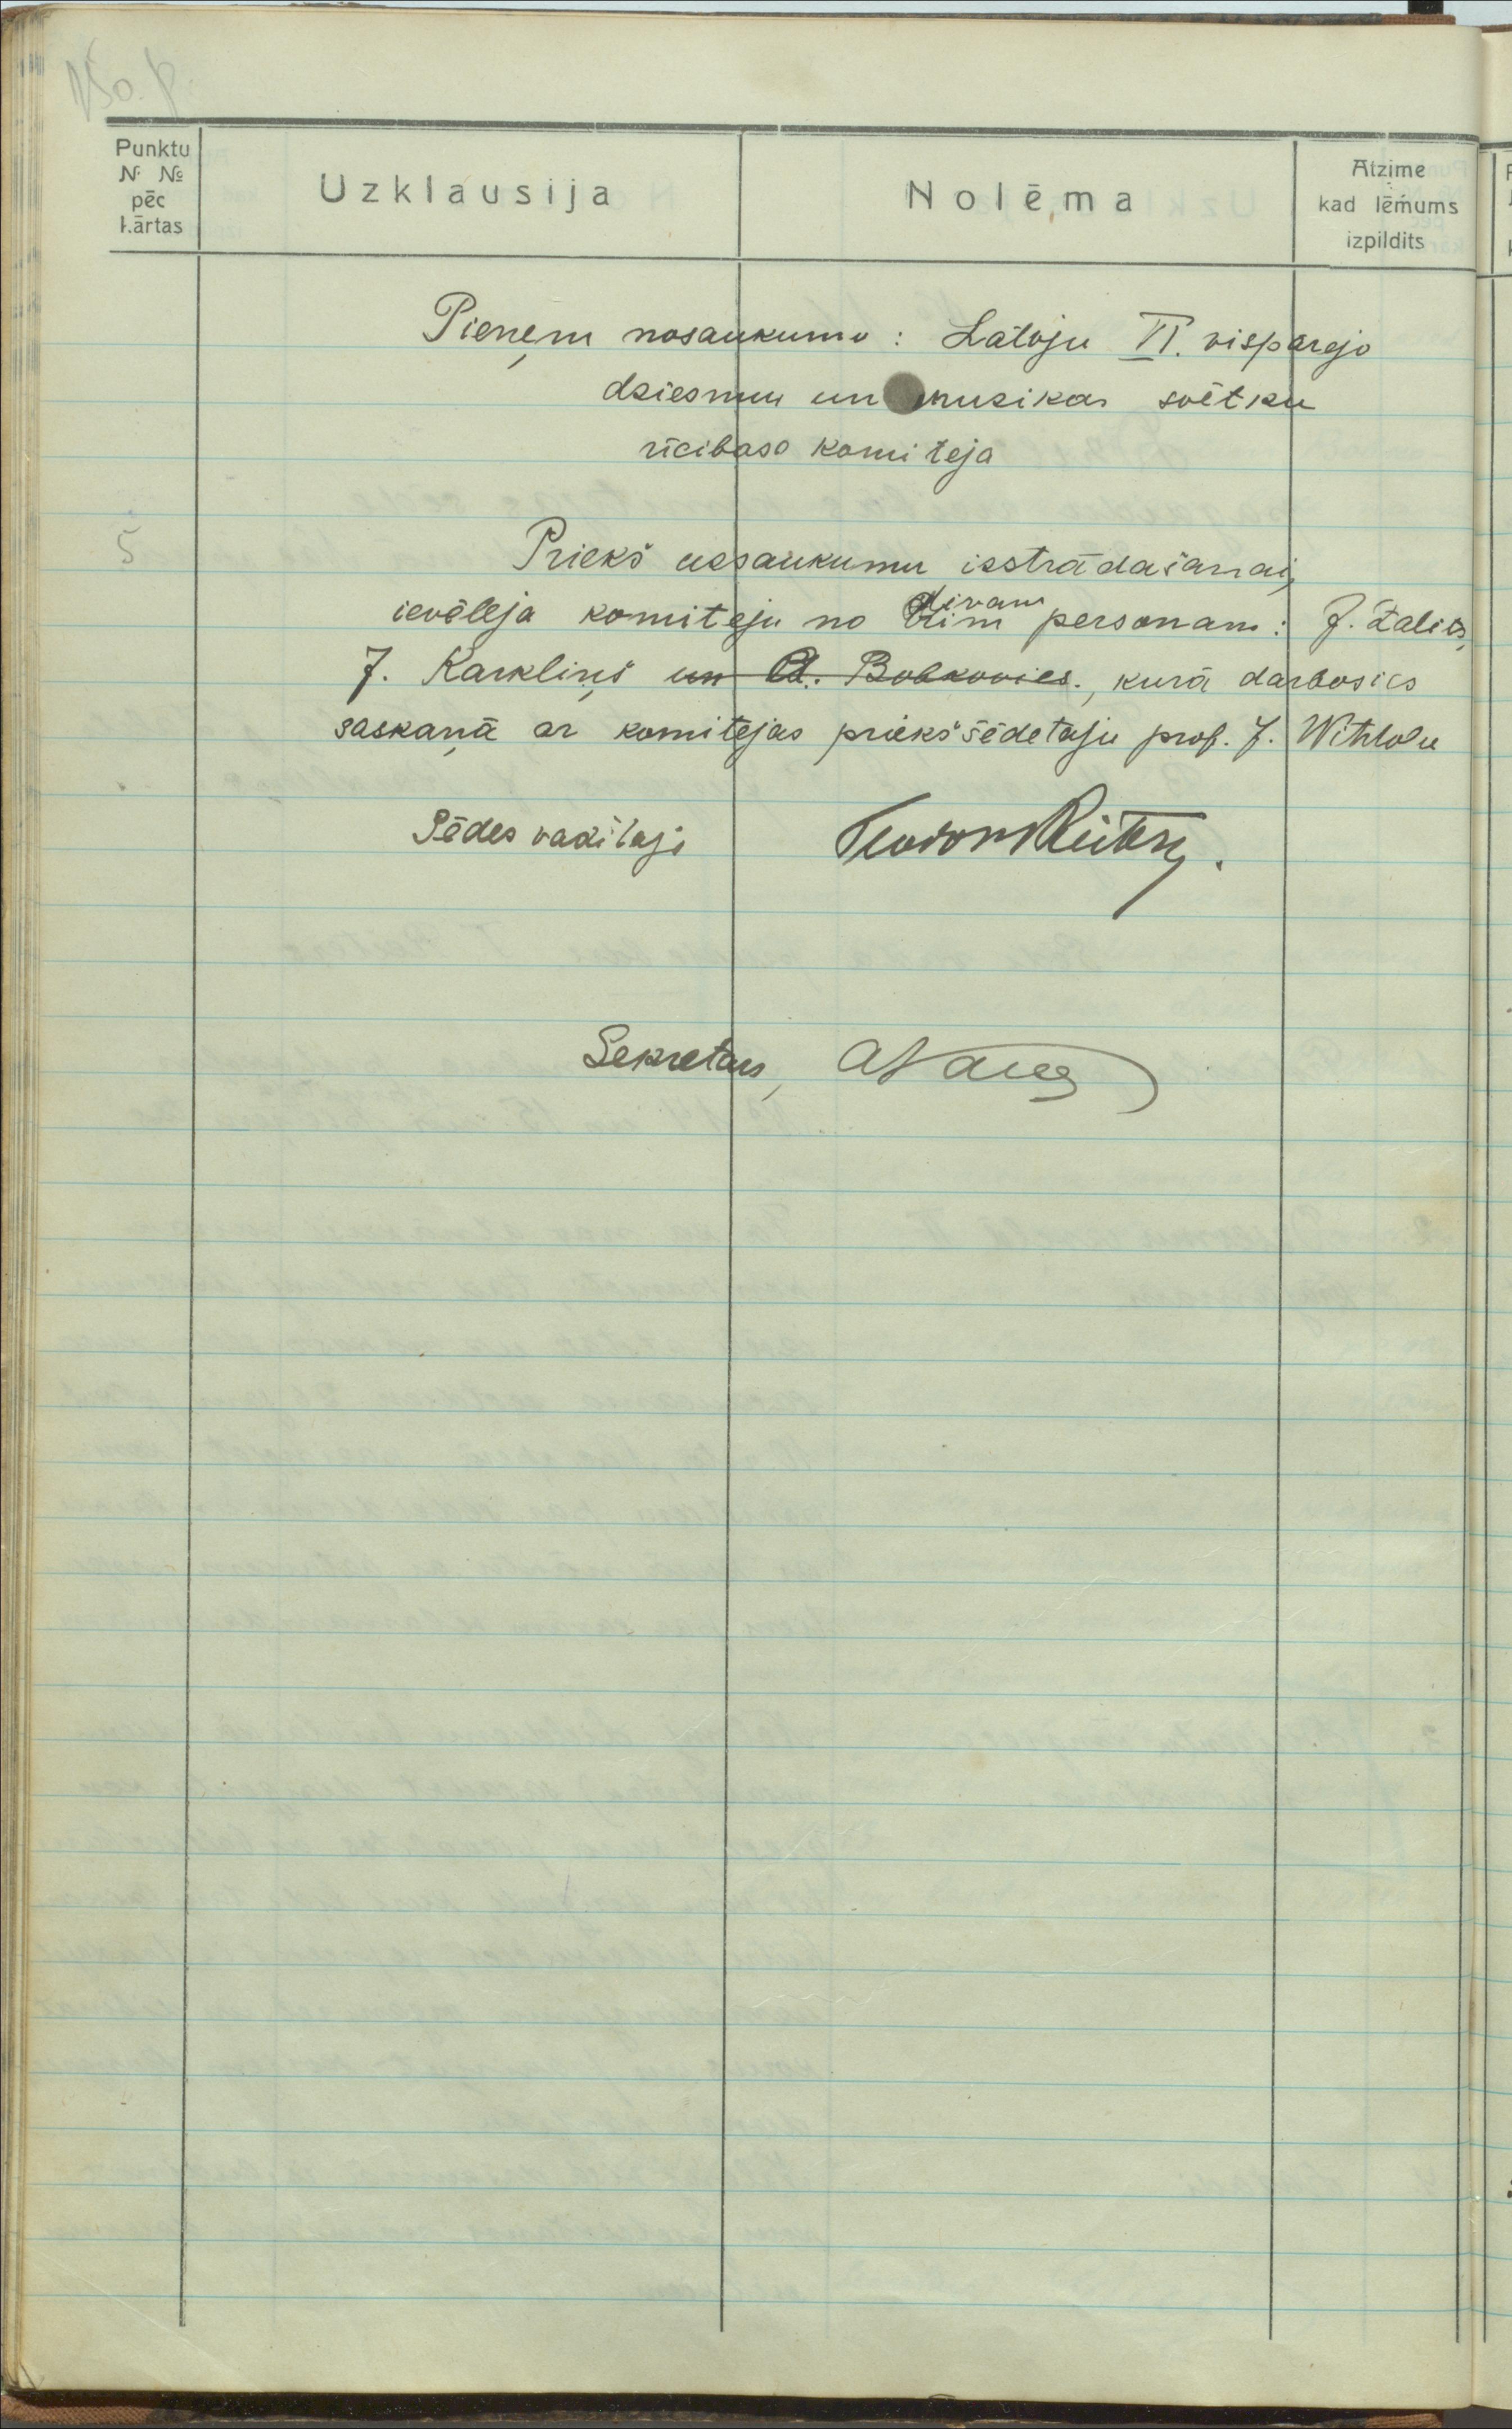 Punktu
№ №
pēc
kārtas
Uzklausija
Nolēma
Atzime
kad lēmums
izpildits
Pieņem nosaukumu: Latvju VI. visparejo
dziesmu un muzikas svētku
rīcibas komiteja
5
Priekš uzsaukumu isstrādašanai,
ievēleja komiteju no divam personam: J. Zalits,
J. Karkliņš un A. Bobkovics., kurā darbosies
saskaņā ar komitejas priekšsēdetaju prof. J. Wihtolu
Sēdes vaditajs Teodors Reiters.
Sekretars,